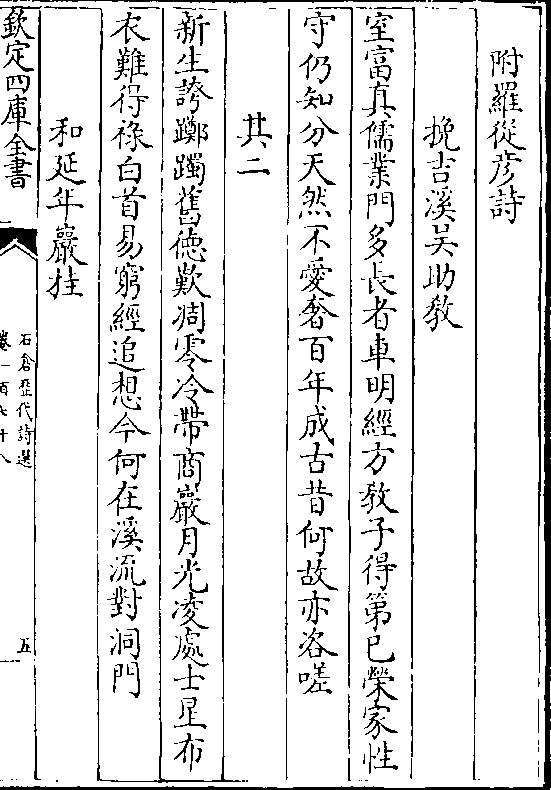 附羅從彦詩
挽吉溪吴助教
室富真儒業門多長者車明經方教子得第已榮家性
守仍知分天然不愛奢百年成古昔何故亦咨嗟
其二
新生誇躑躅舊徳歎凋零冷帶商巖月光凌處士星布
衣難得禄白首易窮經追想今何在溪流對洞門
和延年巖桂
欽定四庫全書
石倉歴代詩選
卷一百七十八
五